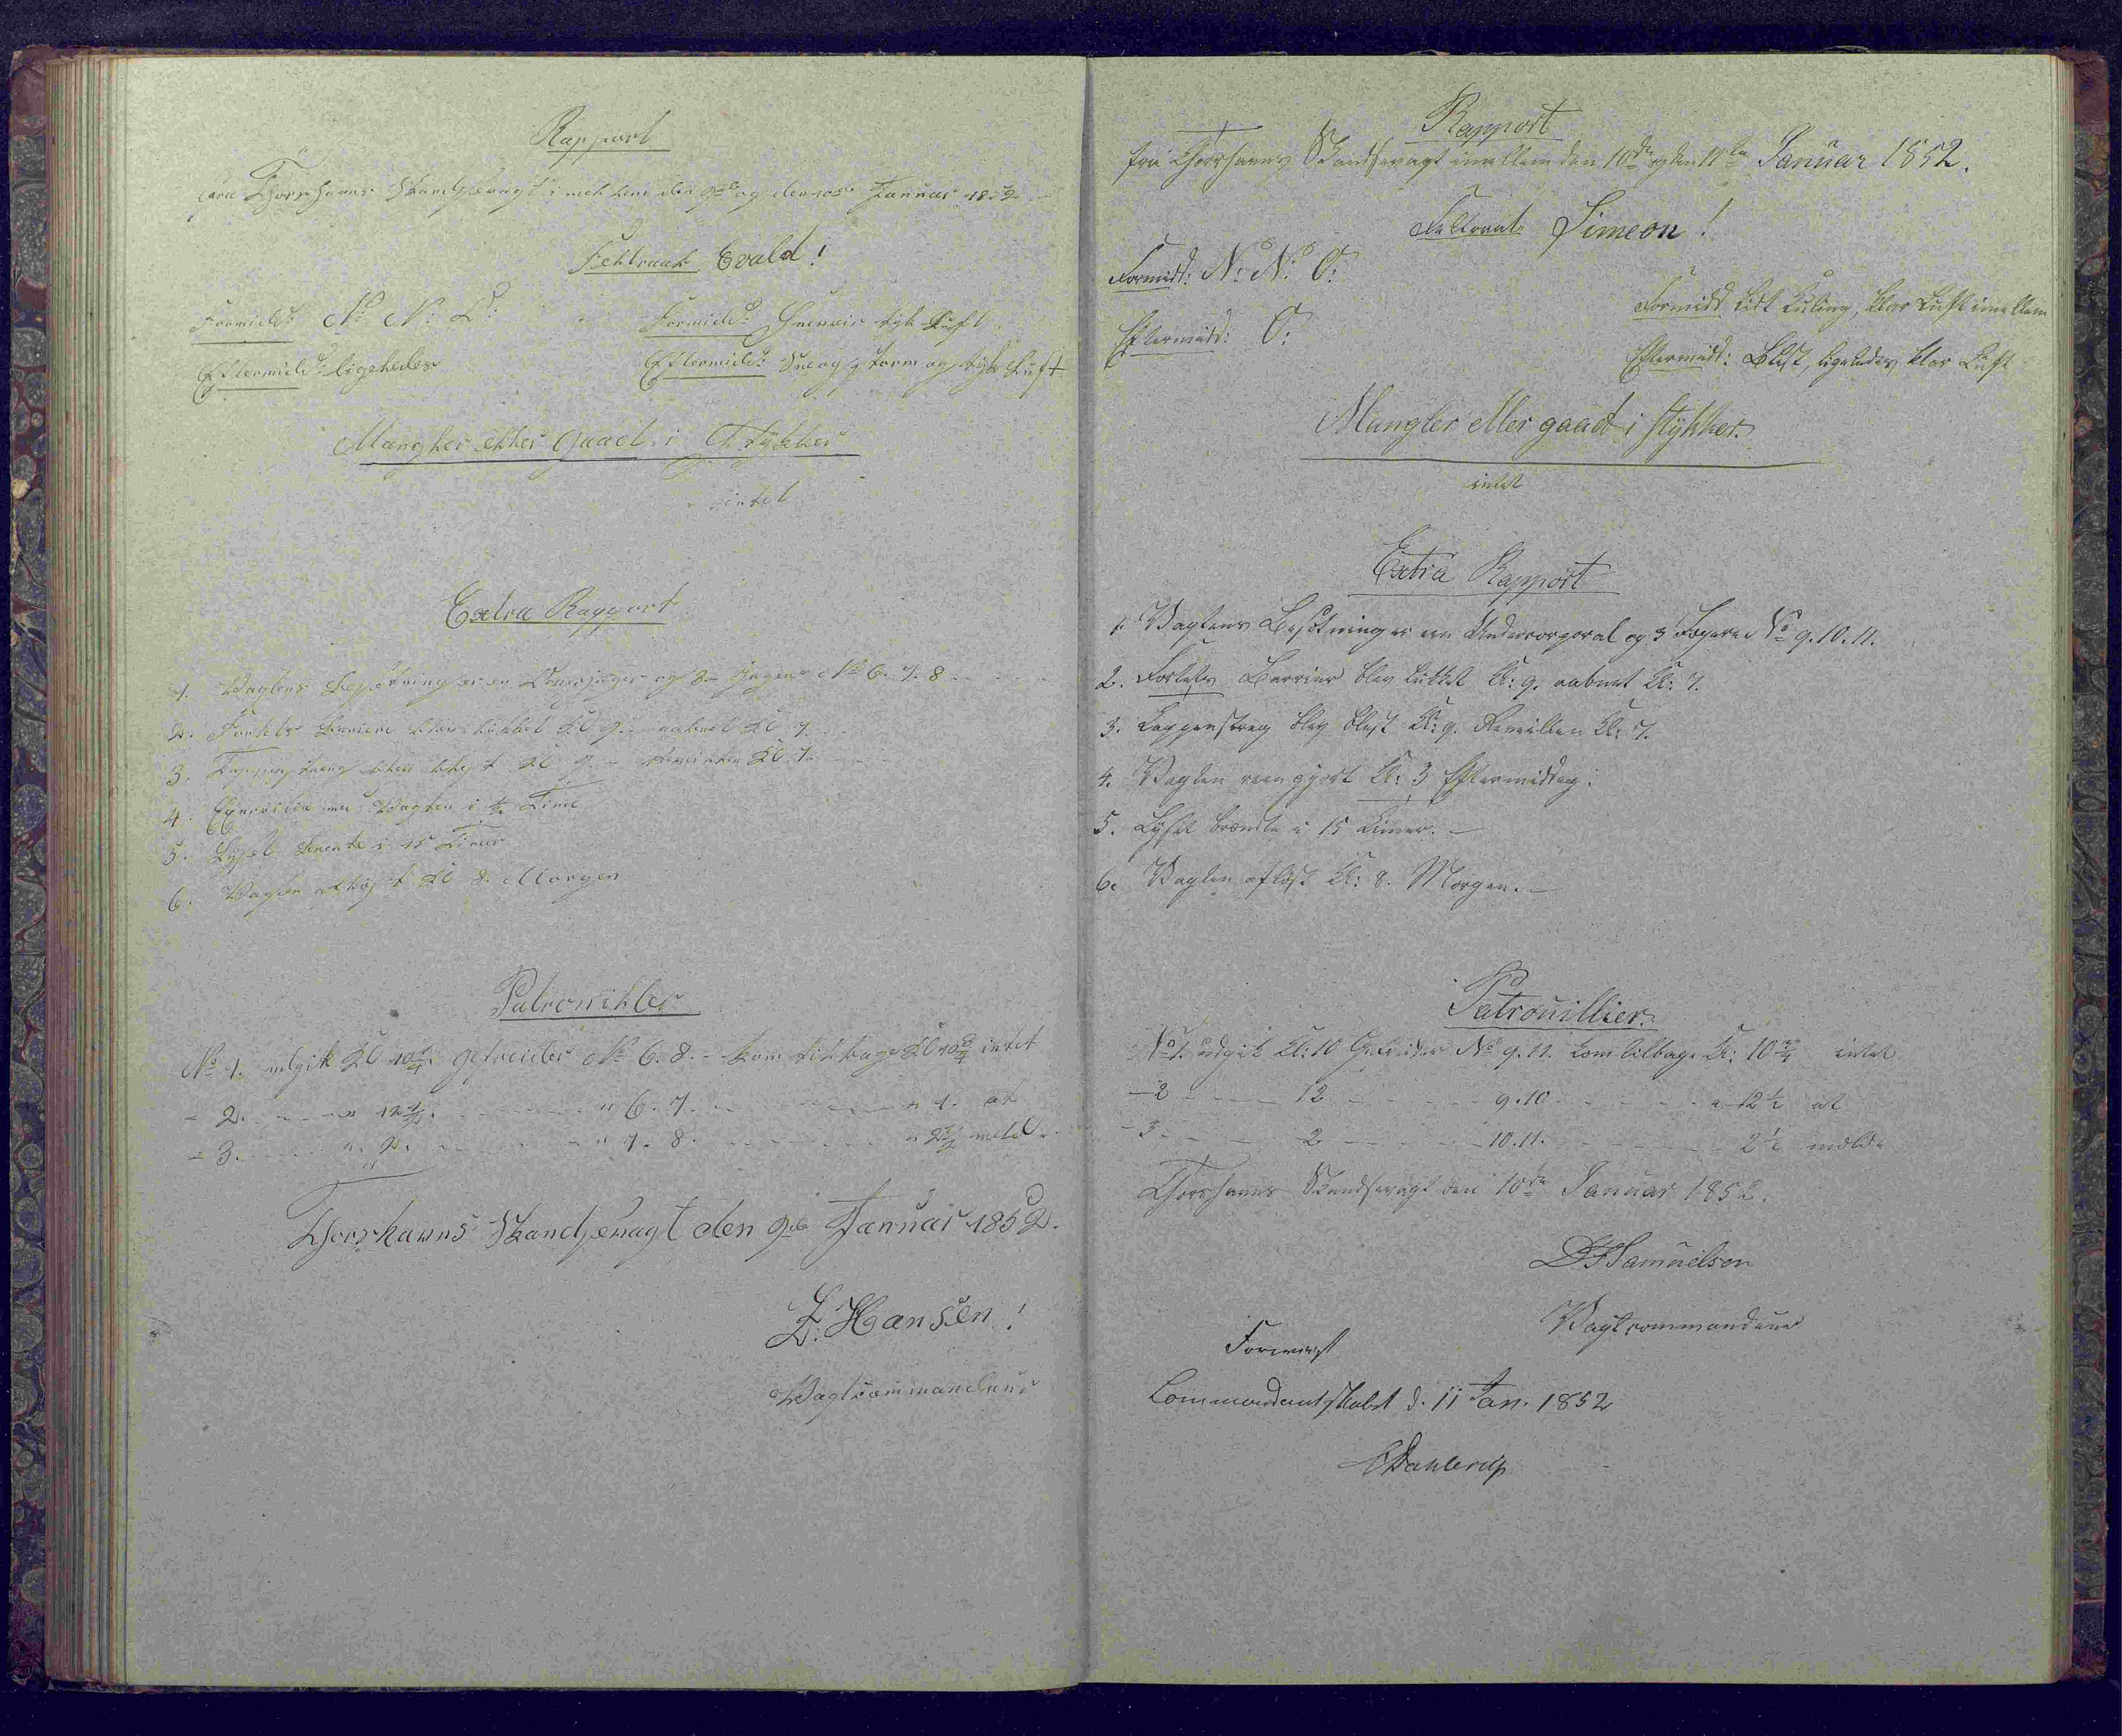 Rapport
fra Thorshavns Skandsevagt imellem den 9de og den 10de Januar 1852
Feltraab Evald!
Formidd: N: N: O:
Eftermidd: ligeledes
Formidd: Sneeveir tyk Luft
Eftermidd: Sneog storm og tyk Luft
Mangler eller Gaaet i Stykker
intet
Extra Rapport
1. Vagtens Besetning er en Overjæger og 3 Jægere No 6. 7. 8
2. Fortets Bariere blev lukket Kl 9. aabnet Kl 7.
3. Tappenstreg blev blæst Kl 9. Reveillen Kl 7.
4. Exerserede med Vagten i ½ Time
5. Lyset brente i 15 Timer
6. Vagten afløst Kl 8. Morgen
Patrouiller
No 1. udgik Kl 10¼. Gefreider No 6. 8. - kom tilbage Kl 10¾ intet
- 2. - - " 12½. - - - " 6. 7. - - - " 1. at
- 3. - - " 2. - - - " 7. 8. - - - " 2½ melde
Thorshavns Skandsevagt den 9de Januar 1852.
Z: Hansen!
Vagtcommandeur
Rapport
fra Thorshavns Skandsevagt imellem den 10de og den 11te Januar 1852.
Feltraab Simeon!
Formidd: N: N: O:
Eftermidd: O:
Formidd Lidt Kuling, klar Luft imellem
Eftermidd: Blæst, ligeledes klar Luft
Mangler eller gaaet i stykker.
intet
Extra Rapport
1. Vagtens Besetning er en Undercorporal og 3 Jægere No 9. 10. 11.
2. Fortets Barriere blev lukket Kl: 9. aabnet Kl: 7.
3. Tappenstreg blev blæst Kl: 9. Reveillen Kl: 7.
4. Vagten reengjort Kl: 3 Eftermiddag.
5. Lyset brændte i 15 Timer. -
6. Vagten afløst Kl: 8. Morgen. -
Patrouillier.
No 1. udgik Kl: 10 Gefreider No 9. 11. kom tilbage Kl: 10¾ intet
- 2 - - - 12 - - - 9. 10 - - - - 12½ at
- 3. - - - 2 - - - 10. 11. - - - 2½ melde
Thorshavns Skandsevagt den 10de Januar 1852.
Samuelsen
Vagtcommandeur
Forevist
Commandantskabet d. 11 Jan. 1852
CDahlerup